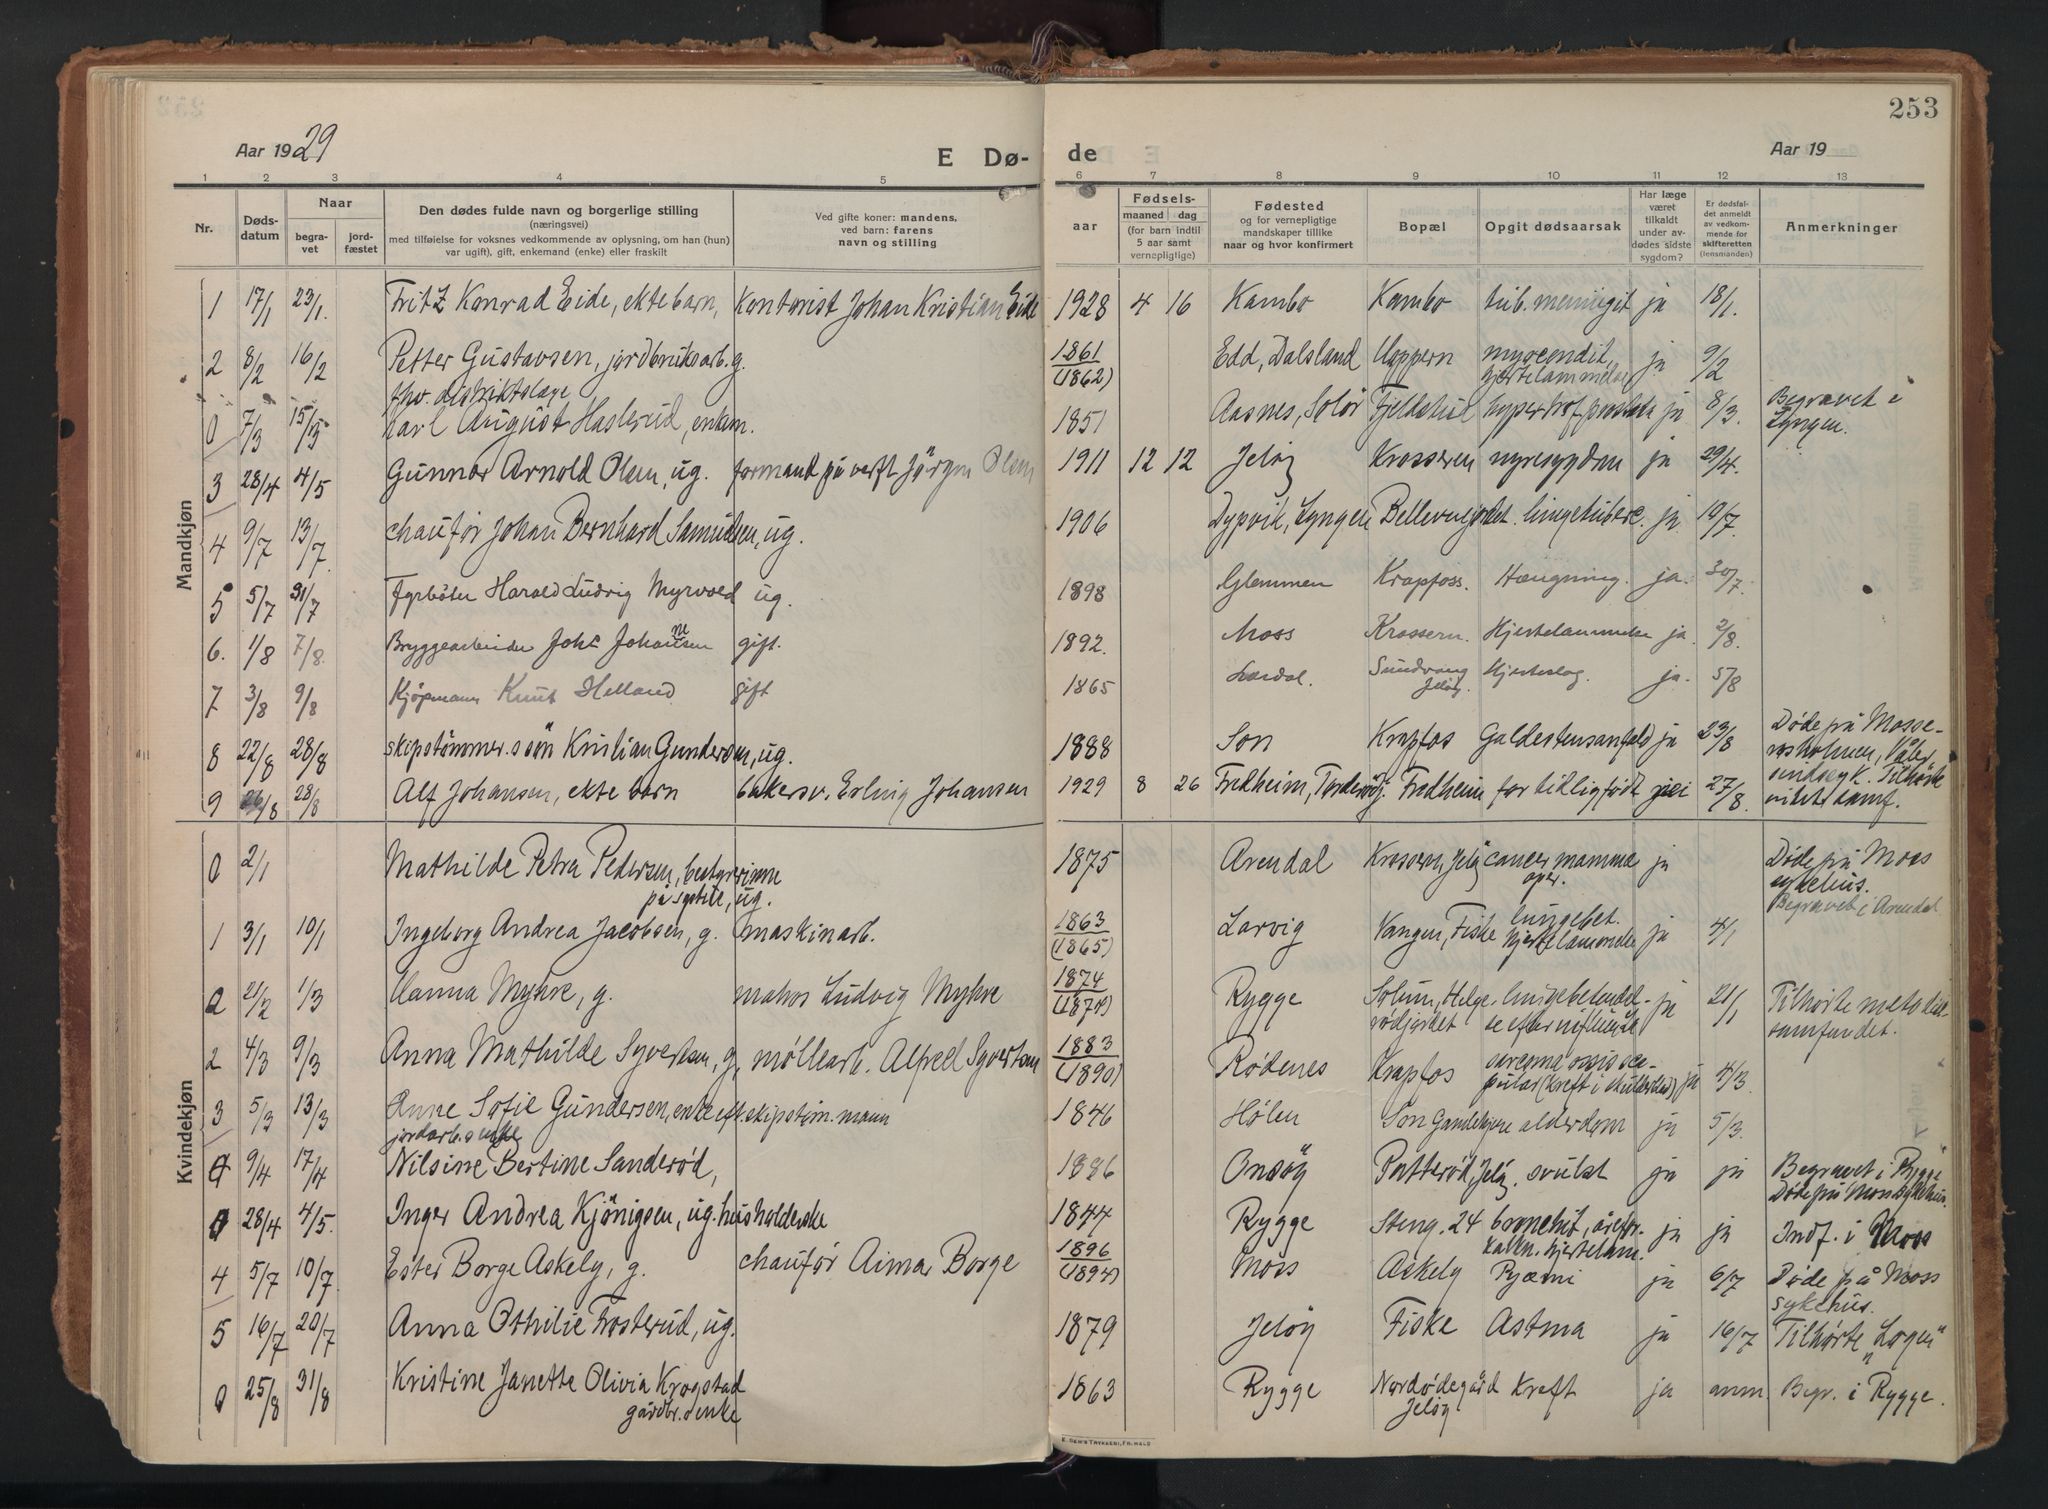 Aar 1929
E Dø-
de
253
Aar 19
1 2 3 4 5 6 7 8 9 10 11 12 13
Nr.
Døds-
datum
Naar
begra-
vet
jord-
fæstet
Den dødes fulde navn og borgerlige stilling
(næringsvei)
med tilføielse for voksnes vedkommende av oplysning, om han (hun)
var ugift), gift, enkemand (enke) eller fraskilt
Ved gifte koner: mandens,
ved barn: farens
navn og stilling
aar
Fødsels-
maaned dag
(for barn indtil
5 aar samt
vernepligtige)
Fødested
og for vernepligtige
mandskaper tillike
naar og hvor konfirmert
Bopæl
Opgit dødsaarsak
Har læge
været
tilkaldt
under av-
dødes sidste
sygdom?
Er dødsfal-
det anmeldt
av vedkom-
mende for
skifteretten
(lensmanden)
Anmerkninger
Mandkjøn
1 17/1 23/1. Fritz Konrad Eide, ekte barn, Kontorist Johan Kristian Eide 1928 4 16 Kambo Kambo tub. meningit ja 18/1.
2 8/2 16/2 Petter Gustavsen, jordbruksarb. g. 1861 (1862) Edd, Dalsland hjertelammelse ja 9/2
fhv. distriktslæge
0 7/3 15/3 Karl August Haslerud, enkem. 1851 Aasnes, Solør Fjeldstul hypertrof. prostata ja 8/3 Begravet i
Lyngen.
3 28/4 4/5 Gunnar Arnold Olsen, ug. formand på verft Jörgen Olsen 1911 12 12 Jeløy Krosseren nyresygdom ja 29/4.
4 9/7 13/7. chauför Johan Bernhard Samuelsen, ug. 1906 Dypvik, Lyngen Bellevuejordet. lungetuberc. ja 10/7.
5 5/7 31/7 Fyrbøter Harald Ludvig Myrvold ug. 1898 Glemmen Krapfoss. Hængning. ja. 30/7.
6. 1/8 7/8. Bryggearbeider Johs Johannesen gift. 1892. Moss Krossern. Hjertelammelse ja. 2/8.
7 3/8 9/8 Kjøpmann Knut Helland gift 1865 Lærdal. Sundvang
Jeløy. Hjerteslag. ja. 5/8
8 22/8 28/8 skipstömmer.s sön Kristian Gundersen, ug. 1888 Son Krapfos Galdestensanfald ja 23/8 Døde på Mosse-
9 26/8 28/8 Alf Johansen, ekte barn bakersv. Erling Johansen 1929 8 26 Fredheim, Fredheim for tidlig født nei 27/8.
Kvindekjøn
0 2/1 Mathilde Petra Pedersen, bestyrerinne
på systue, ug. 1875 Arendal Krossern, Jeløy cancer mammae
oper. ja Døde på Moss
sykehus.
Begravet i Arendal
1 3/1 10/1 Ingeborg Andrea Jacobsen, g. maskinarb. 1863 (1865) Larvig Vangen, Fiske lungebet.
hjertelammelse ja 4/1
2 21/2 1/3 Hanna Myhre, g. Ludvig Myhre 1874 (1874) Rygge Solum, Helge-
rødjordet lungebetendel-
se efter influensa ja 21/1 Tilhørte metodist-
samfundet.
2 4/3 9/3 Anna Mathilde Syvertsen, g, møllearb. Alfred Syvertsen 1883 (1890) Rødenes Krapfos (kreft i skulderblad) ja 4/3
3 5/3 13/3 Anne Sofie Gundersen, enke eft. skipstöm. mann 1846 Hølen Son Gamlehjem alderdom ja 5/3.
jordarb.s enke
0 9/4 17/4 Nilsine Bertine Sanderød, Onsøy Patterød, Jeløy. svulst ja ja Begravet i Rygge
Døde på Moss sykehus.
0 28/4 4/5. Inger Andrea Kjönigsen, ug. husholderske 1844 Rygge Steng. 24 bronchit, årefor-
kalkn. hjertelam. ja ja Indf. i Moss
4 5/7 10/7. Ester Borge Askely, g. chauför Aimar Borge 1896 (1894) Moss Askely Pyæmi ja 6/7 Døde på Moss
sykehus.
5 16/7 20/7 Anna Othilie Frosterud, ug. 1879 Jeløy Fiske Astma ja 16/7 Tilhørte "Logen"
0 25/8 31/8 Kristine Janette Olivia Krogstad
gårdbr.s enke 1863 Rygge Nordødegård
Jeløy Kreft ja anm. Begr. i Rygge.
E. SEM'S TRYKKERI, FR.HALD